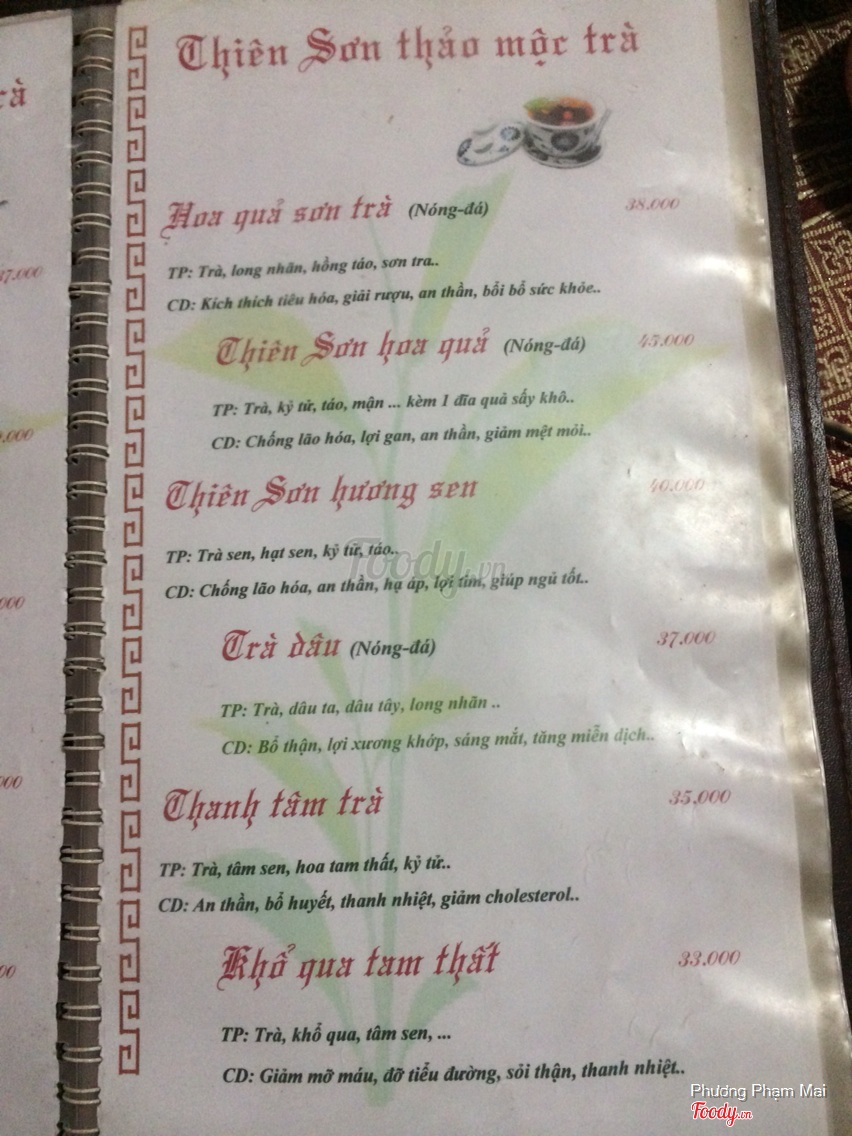 Thiên Sơn thảo mộc trà
rà
Hoa quả sơn trà (Nóng-đá) 38.000
TP: Trà, long nhãn, hồng táo, sơn tra..
37.000
CD: Kích thích tiêu hóa, giải rượu, an thần, bồi bổ sức khỏe..
Thiên Sơn hoa quả (Nóng-đá) 45.000
TP: Trà, kỷ tử, táo, mận ... kèm 1 đĩa quả sấy khô..
CD: Chống lão hóa, lợi gan, an thần, giảm mệt mỏi..
Thiên Sơn hương sen 40.000
TP: Trà sen, hạt sen, kỷ tử, táo..
Foody.vn
CD: Chống lão hóa, an thần, hạ áp, lợi tim, giúp ngủ tốt..
Trà dâu (Nóng-đá) 37.000
TP: Trà, dâu ta, dâu tây, long nhãn ..
CD: Bổ thận, lợi xương khớp, sáng mắt, tăng miễn dịch..
Thanh tâm trà 35.000
TP: Trà, tâm sen, hoa tam thất, kỷ tử..
CD: An thần, bổ huyết, thanh nhiệt, giảm cholesterol..
Khổ qua tam thất 33.000
TP: Trà, khổ qua, tâm sen, ...
CD: Giảm mỡ máu, đỡ tiểu đường, sỏi thận, thanh nhiệt..
Phương Phạm Mai
Foody.vn